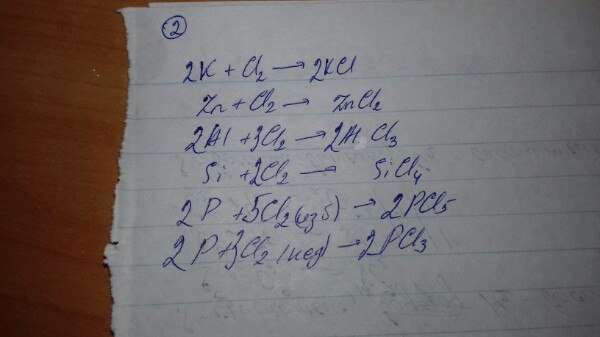 2
2K + Cl₂ → 2KCl
Zn + Cl₂ → ZnCl₂
2Al + 3Cl₂ → 2AlCl₃
Si + 2Cl₂ — SiCl₄
2P + 5Cl₂ (изб) → 2PCl₅
2P + 3Cl₂ (нед) → 2PCl₃